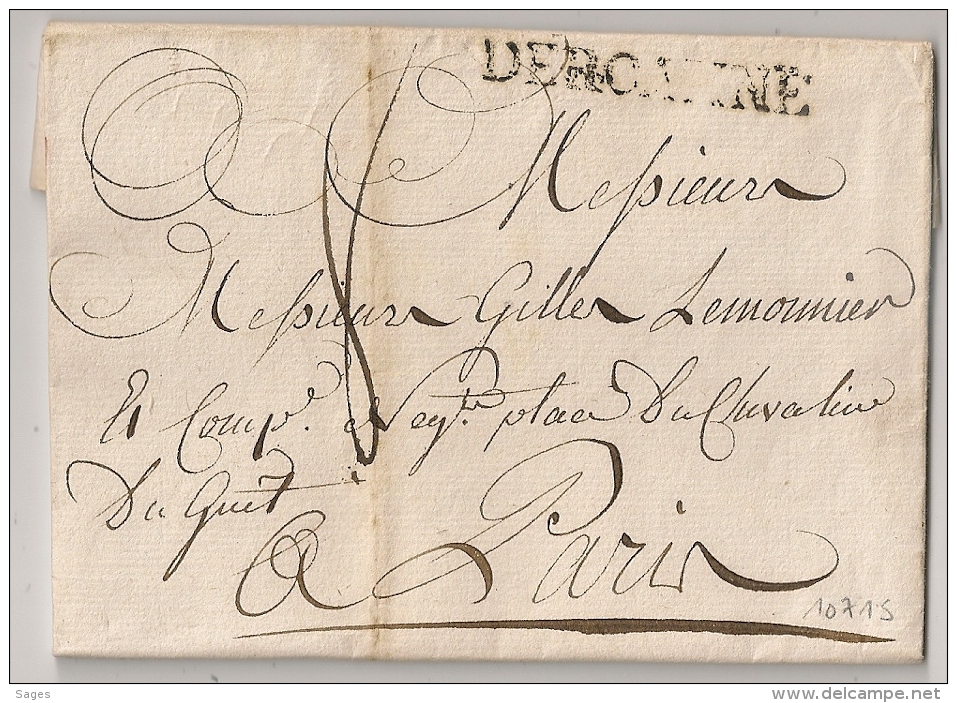 DEROANNE
A Messieurs
Messieurs Gilles Lemonnier
Et Comp.e Neg.ts place Du Chevalier
Du Guet
A Paris
10715
Sages
www.delcampe.net